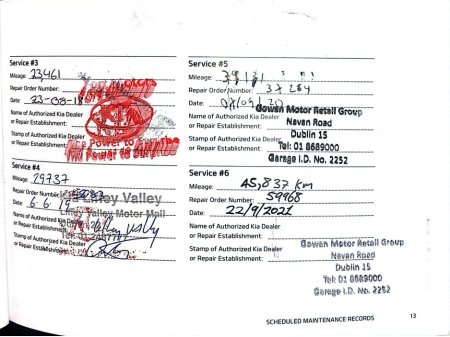 Service #3
Mileage: 23,461
Repair Order Number:
Date: 23-08-18
Name of Authorized Kia Dealer
or Repair Establishment:
Stamp of Authorized Kia Dealer
or Repair Establishment:
Power to
The Power to Surprise
Service #4
Mileage: 29737
Repair Order Number:
Date: 6-6-19
Name of Authorized Kia Dealer
or Repair Establishment:
Stamp of Authorized Kia Dealer
or Repair Establishment:
Liffey Valley
Liffey Valley Motor Mall
Tel: 01
Service #5
Mileage:
Repair Order Number: 37284
Date:
Name of Authorized Kia Dealer
or Repair Establishment:
Stamp of Authorized Kia Dealer
or Repair Establishment:
Gowan Motor Retail Group
Navan Road
Dublin 15
Tel: 01 8689000
Garage I.D. No. 2252
Service #6
Mileage: 45,837 km
Repair Order Number: 59968
Date: 22/9/2021
Name of Authorized Kia Dealer
or Repair Establishment:
Stamp of Authorized Kia Dealer
or Repair Establishment:
Gowan Motor Retail Group
Navan Road
Dublin 15
Tel: 01 8689000
Garage I.D. No. 2252
SCHEDULED MAINTENANCE RECORDS 13